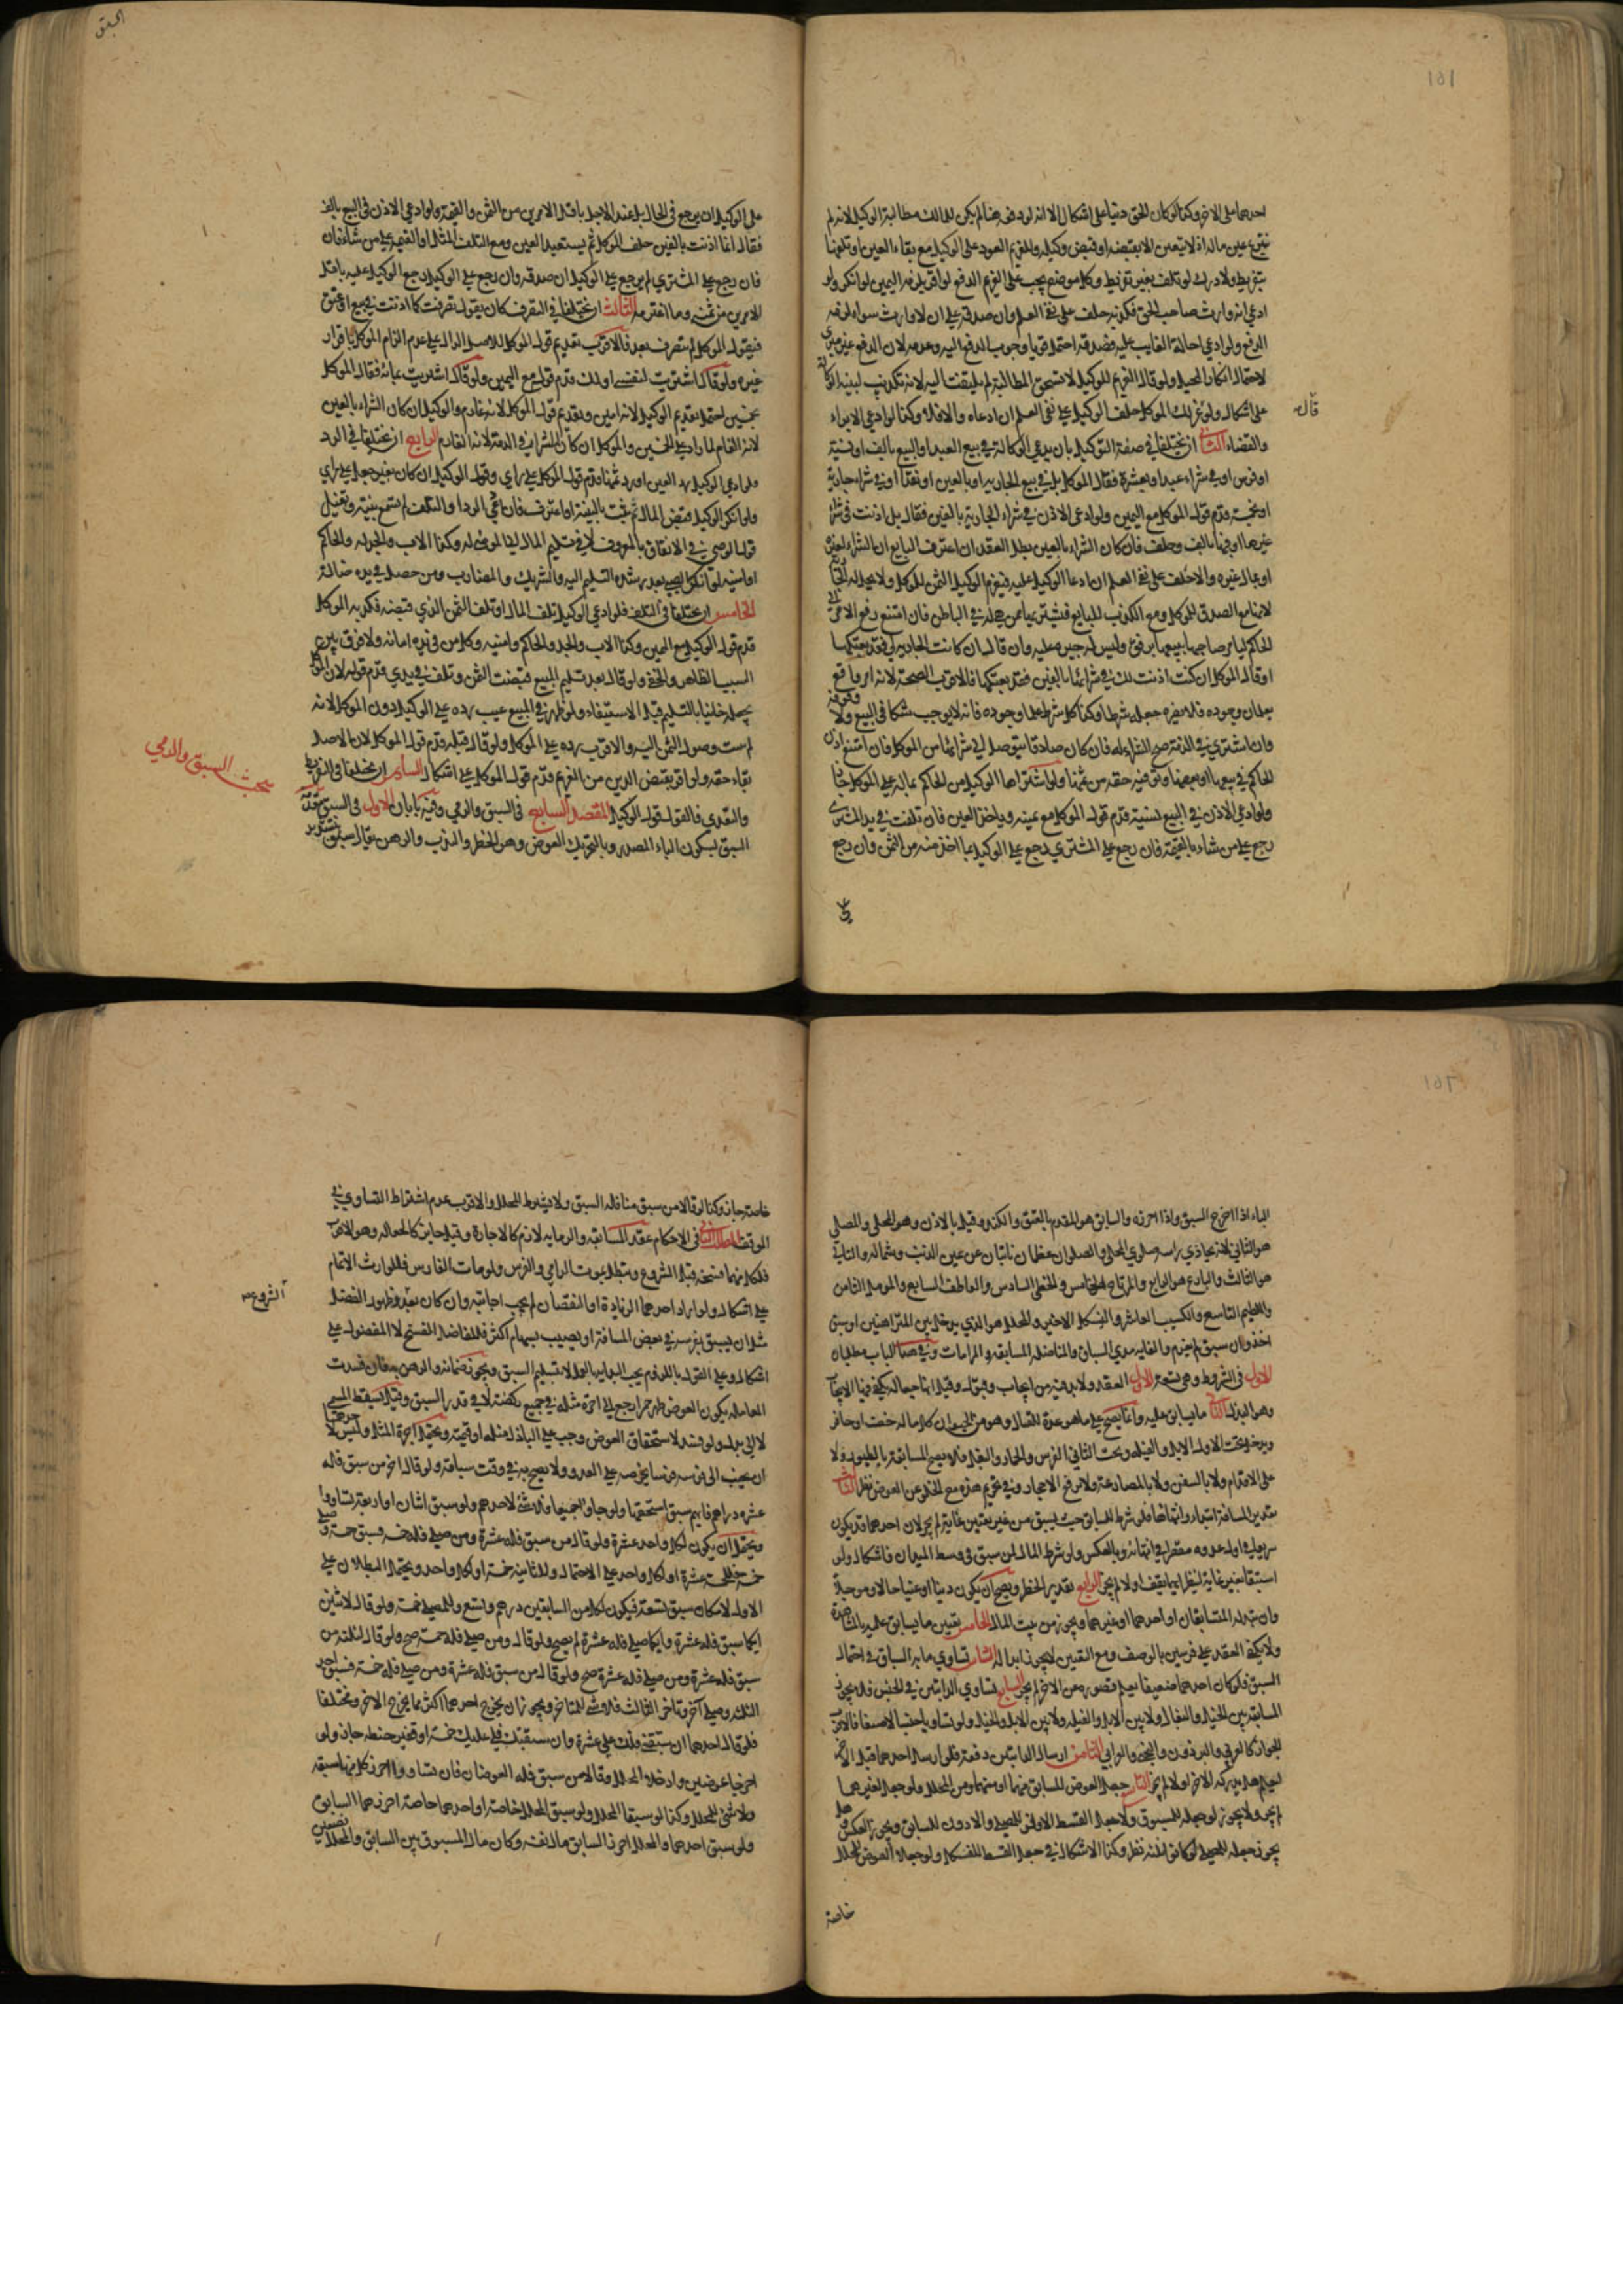 ١٥١
احدهما على الاخر وكذا لو كان الحق دينا على اشكال الا انه لو دفعه هنا لم يكن للمالك مطالبة الوكيل لانه لم
ينتزع عين ماله اذ لا يتعين الا بقبضه او قبض وكيله وللغريم العود على الوكيل مع بقاء العين او تلفها
بتفريط ولا درك لو تلف بغير تفريط وكل موضع يجب على الغريم الدفع لو اقر يلزمه اليمين لو انكر ولو
ادعى انه وارث صاحب الحق فكذبه حلف على نفي العلم وان صدقه على ان لا وارث سواه لزمه
الدفع ولو ادعى احالة الغايب عليه فصدقه احتمل قويا وجوب الدفع اليه وعدمه لان الدفع غير مبرئ
لاحتمال انكار المحيل ولو قال الغريم للوكيل لا تستحق المطالبة لم يلتفت اليه لانه تكذيب لبينة الوكالة
على اشكال ولو قال عزلك الموكل حلف الوكيل على نفي العلم ان ادعاه والا فلا وكذا لو ادعى الابراء
قال
والقضاء الثاني ان يختلفا في صفة التوكيل بان يدعي الوكالة في بيع العبد او البيع بالف او نسية
او فرس او في شراء عبد او بعشرة فقال الموكل بل في بيع الجارية او بالفين او نقدا او في شراء جارية
او بخمسة قدم قول الموكل مع اليمين ولو ادعى الاذن في شراء الجارية بالفين فقال بل اذنت في شراء
غيرها او فيها بالف وحلف فان كان الشراء بالعين بطل العقد ان اعترف البايع ان الشراء لغيره
او بمال غيره والا حلف على نفي العلم ان ادعا الوكيل عليه فيغرم الوكيل الثمن للموكل ولا يحل له الجارية
لانها مع الصدق للموكل ومع الكذب للبايع فيشتريها ممن هي له في الباطن فان امتنع رفع الامر الى
الحاكم ليامر صاحبها ببيعها برفق وليس له جبره عليه وان قال ان كانت الجارية لي فقد بعتكها
او قال الموكل ان كنت اذنت لك في شرائها بالفين فقد بعتكها فالاقرب الصحة لانه امر واقع
يعلمان وجوده فلا يضره جعله شرطا وكذا كل شرط علما وجوده فانه لا يوجب شكا في البيع ولا وقوفه
وان اشترى في الذمة صح الشراء له فان كان صادقا يتوصل الى شرائها من الموكل فان امتنع اذن
الحاكم في بيعها او بعضها وتوفيه حقه من ثمنها ولو اشتراها الوكيل من الحاكم بماله على الموكل جاز
ولو ادعى الاذن في البيع نسية قدم قول الموكل مع يمينه وياخذ العين فان تلفت في يد المشتري
رجع على من شاء بالقيمة فان رجع على المشتري رجع على الوكيل بما اخذ منه من الثمن وان رجع
على الوكيل ان يرجع في الحال بل عند الاجل باقل الامرين من الثمن والقيمة ولو ادعى الاذن في البيع بالف
فقال انما اذنت بالفين حلف الموكل ثم يستعيد العين ومع التلف المثل او القيمة على من شاء فان
فان رجع على المشتري لم يرجع على الوكيل ان صدقه وان رجع على الوكيل رجع الوكيل عليه باقل
الامرين من ثمنه وما اغترمه الثالث ان يختلفا في التصرف كان يقول تصرفت كما اذنت في بيع او عتق
فيقول الموكل لم تتصرف بعد فالاقرب تقديم قول الموكل للاصل الدال على عدم الزام الموكل باقرار
غيره ولو قال اشتريت لنفسي او لك قدم قوله مع اليمين ولو قال اشتريت بمائة فقال الموكل
بخمسين احتمل تقديم الوكيل لانه امين وتقديم قول الموكل لانه غارم والوكيل ان كان الشراء بالعين
لانه الغارم لما زاد على الخمسين والموكل ان كان الشراء في الذمة لانه الغارم الرابع ان يختلفا في الرد
فلو ادعى الوكيل رد العين او رد ثمنها قدم قول الموكل على رأي وقول الوكيل ان كان بغير جعل على رأي
ولو انكر الوكيل قبض المال ثم ثبت بالبينة او اعترف فادعى الرد او التلف لم تسمع بينته وتقبل
قول الوصي في الانفاق بالمعروف لا في تسليم المال الى الموصى له وكذا الاب والجد له والحاكم
او امينه لو انكر الصبي بعد رشده التسليم اليه والشريك والمضارب ومن حصل في يده ضالة
الخامس ان يختلفا في التلف فلو ادعى الوكيل تلف المال او تلف الثمن الذي قبضه فكذبه الموكل
قدم قول الوكيل مع اليمين وكذا الاب والجد والحاكم وامينه وكل من في يده امانة ولا فرق بين
السبب الظاهر والخفي ولو قال بعد تسليم المبيع قبضت الثمن وتلف في يدي قدم قوله لان الموكل
يجعله خائنا بالتسليم قبل الاستيفاء ولو ظهر في المبيع عيب رده على الوكيل دون الموكل لانه
لم يثبت وصول الثمن اليه والاقرب رده على الموكل ولو قال قبله قدم قول الموكل لان الاصل
بقاء حقه ولو اقر بقبض الدين من الغريم قدم قول الموكل على اشكال السادس ان يختلفا في التفريط
والتعدي فالقول قول الوكيل المقصد السابع في السبق والرمي وفيه بابان الاول في السبق مقدمة
السبق بسكون الباء المصدر وبالتحريك العوض وهو الخطر والندب والرهن يقال سبق بتشديد
مبحث السبق والرمي
الباء اذا اخرج السبق واذا احرزه والسابق هو المتقدم بالعنق والكتد وقيل بالاذن وهو المجلي والمصلي
هو الثاني لانه يحاذي راسه صلوي المجلي والصلوان عظمان ناتيان عن يمين الذنب وشماله والتالي
هو الثالث والبارع هو الرابع والمرتاح هو الخامس والحظي السادس والعاطف السابع والمومل الثامن
واللطيم التاسع والسكيت العاشر والفسكل الاخير والمحلل هو الذي يدخل بين المتراهنين ان سبق
اخذ وان سبق لم يغرم والغاية مدى السباق والمناضلة المسابقة والمراماة وفي هذا الباب مطلبان
الاول في الشروط وهي تسعة الاول العقد ولا بد فيه من ايجاب وقبول وقيل انها جعالة يكفي فيها الايجاب
وهو البذل الثاني ما يسابق عليه وانما يصح على ما هو عدة للقتال وهو من الحيوان كل ما له خف او حافر
ويدخل تحت الاول الابل والفيلة وتحت الثاني الفرس والحمار والبغل فلا يصح المسابقة بالطيور ولا
على الاقدام ولا بالسفن ولا بالمصارعة ولا برفع الاحجار وفي تحريم هذه مع الخلو عن العوض نظر الثالث
تقدير المسافة ابتداء وانتهاء فلو شرط المسابق حيث يسبق من غير تعيين غاية لم يجز لان احدهما قد يكون
سريعا في اول عدوه مقصرا في انتهائه وبالعكس ولو شرط المال لمن سبق في وسط الميدان فاشكال ولو
استبقا بغير غاية لينظر ايهما يقف اولا لم يجز الرابع تقدير الخطر ويصح ان يكون دينا او عينا حالا ومؤجلا
وان يبذله المتسابقان او احدهما او غيرهما ويجوز من بيت المال الخامس تعيين ما يسابق عليه بالمشاهدة
ولا يكفي العقد على فرسين بالوصف ومع التعيين لا يجوز ابداله السادس تساوي ما به السباق في احتمال
السبق فلو كان احدهما ضعيفا يعلم قصوره عن الاخر لم يجز السابع تساوي الدابتين في الجنس فلا يجوز
المسابقة بين الخيل والبغال ولا بين الابل والفيلة ولا بين الابل والخيل ولو تساويا جنسا لا صنفا فالاقرب
الجواز كالعربي والبرذون والبختي والعرابي الثامن ارسال الدابتين دفعة فلو ارسل احدهما قبل الاخر
ليعلم هل يدركه الاخر او لا لم يجز التاسع جعل العوض للسابق منهما او منهما ومن المحلل ولو جعل لغيرهما
لم يجز ولا يجوز لو جعل للمسبوق ولا جعل القسط الاوفر للمصلي والادون للسابق ويجوز العكس وهل
يجوز جعله للمصلي لو كانوا ثلثة نظر وكذا الاشكال في جعل القسط للفسكل ولو جعلا العوض للمحلل
خاصة
خاصة جاز وكذا لو قالا من سبق منا فله السبق ولا يشترط المحلل والاقرب عدم اشتراط التساوي في
الموقف المطلب الثاني في الاحكام عقد المسابقة والرماية لازم كالاجارة وقيل جايز كالجعالة وهو الاقرب
فلكل منهما فسخه قبل الشروع وتبطل بموت الرامي والفرس ولو مات الفارس فللوارث الاتمام
على اشكال ولو اراد احدهما الزيادة او النقصان لم يجب اجابته وان كان بعد وظهور الفضل
الشروع
مثل ان يسبق بفرسه في بعض المسافة او يصيب بسهام اكثر فللفاضل الفسخ لا المفضول على
اشكال وعلى القول باللزوم يجب البداية بالعمل لا بتسليم السبق ويجوز ضمانه والرهن به فان فسدت
المعاملة بكون العوض ظهر خمرا رجع الى اجرة مثله في جميع ركضه لا في قدر السبق وقيل يسقط المسمى
لا الى بدل ولو فسد لاستحقاق العوض وجب على الباذل مثله او قيمته ويحتمل اجرة المثل وليس لاحدهما
ان يجنب الى فرسه فرسا يحرضه على العدو ولا يصيح به في وقت سباقه ولو قال اخر من سبق فله
عشرة دراهم فايهم سبق استحقها ولو جاؤا جميعا فلا شئ لاحدهم ولو سبق اثنان او اربعة تساووا
ويحتمل ان يكون لكل واحد عشرة ولو قال من سبق فله عشرة ومن صلى فله خمسة فسبق خمسة وصلى
خمسة فللخمسة عشرة او لكل واحد على الاحتمال وللثانية خمسة او لكل واحد ويحتمل البطلان على
الاول لامكان سبق تسعة فيكون لكل من السابقين درهم وتسع وللمصلي خمسة ولو قال لاثنين
ايكما سبق فله عشرة وايكما صلى فله عشرة لم يصح ولو قال ومن صلى فله خمسة صح ولو قال لثلثة من
سبق فله عشرة ومن صلى فله عشرة صح ولو قال من سبق فله عشرة ومن صلى فله خمسة فسبق احد
الثلثة وصلى اخر وتاخر الثالث فلا شئ للمتاخر ويجوز ان يخرج احدهما اكثر مما يخرج الاخر ومختلفا
فلو قال احدهما ان سبقتني فلك علي عشرة وان سبقتك فلي عليك خمسة او قفيز حنطة جاز ولو
اخرجا عوضين وادخلا المحلل وقالا من سبق فله العوضان فان تساووا احرز كل منهما سبقه
ولا شئ للمحلل وكذا لو سبقا المحلل ولو سبق المحلل خاصة او احدهما خاصة احرزهما السابق
ولو سبق احدهما والمحلل احرز السابق مال نفسه وكان مال المسبوق بين السابق والمحلل نصفين